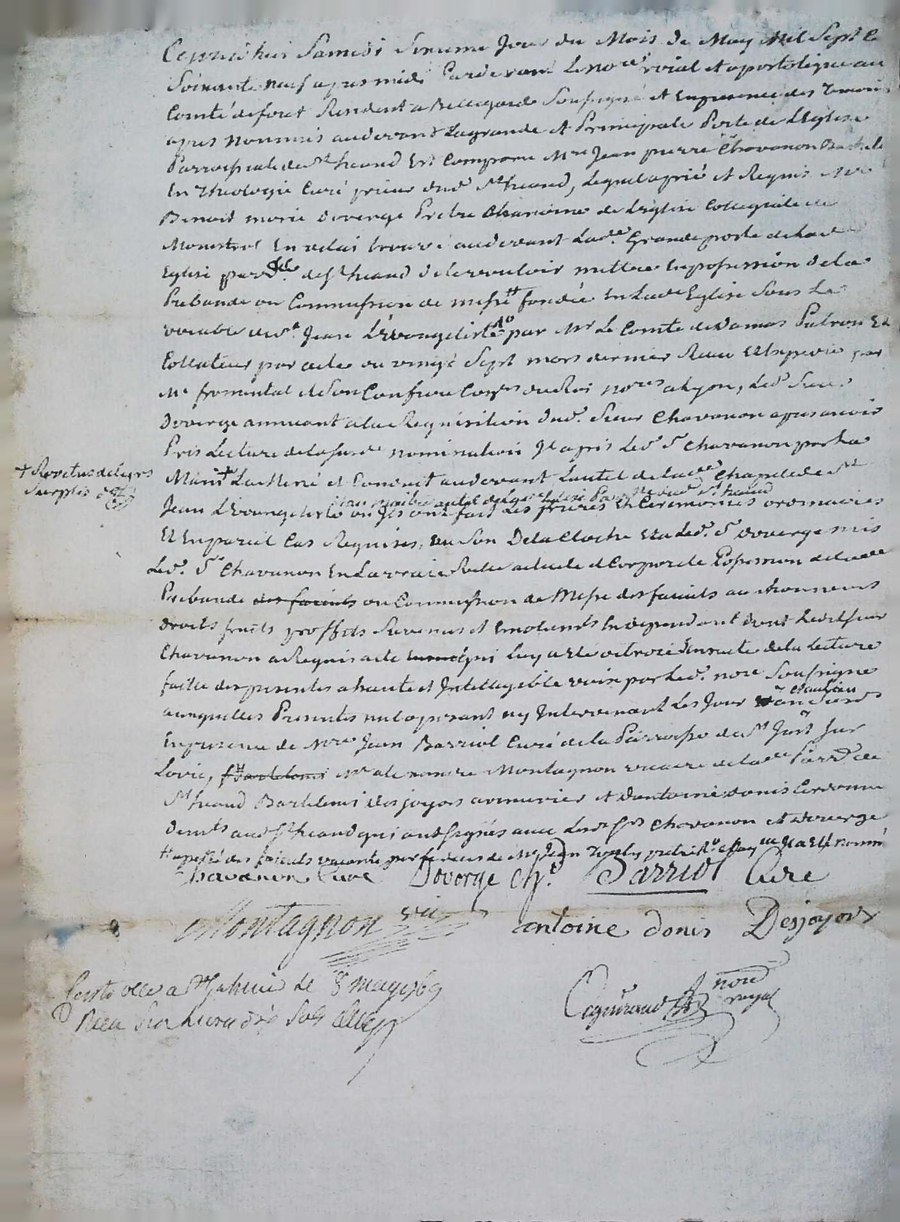 Cejourdhui Samedi Sixieme Jour du Mois de May Mil Sept C
Soixante neuf apres midi Pardevant Le no.re roial et apostolique au
Comté de foret Residant a Bellegarde Soussigné et En presence des Temoins
apres nommés audevant Lagrande et Principale Porte de L'Eglise
Parroissiale de St heand Est Comparu M.re Jean pierre Chavanon Bachelie
En Theologie Curé prieur dud. St heand, Lequel a prié et Requis M.re
Benoit marie Doverge Pretre Chanoine de L'Eglise Collegiale de
Monistrol En velai trouvé audevant Lad.e Grande porte de Lad.e
Eglise par.lle de St heand de Le vouloir mettre En possession de La
Prebande ou Commission de messe fondée En Lad.e Eglise Sous Le
vocable de St Jean L'Evangeliste par Mr Le Comte de Damas Patron Et
Collateur par acte du vingt Sept mars dernier Recu Et Expedié par
Me fromental et Son Confrere Con.ers du Roi no.res a Lyon, Led. Sieur
Doverge annuant a La Requisition dud. Sieur Chavanon apres avoir
Pris Lecture de la nomination Ja apres Led. Sr Chavanon par La
+ Revetus de Leurs
Surplis
Main + La Mené et Conduit audevant Lautel de Lad.e Chapelle de St
Jean L'Evangeliste ou Jls ont fait Les prieres Et Ceremonies ordinaires
Et En pareil Cas Requises, au Son De la Cloche Et a Led. Sr Doverge mis
Led. Sr Chavanon En La vraie Relle actuelle et Corporelle Possession de Lad.e
Prebande des faicuits ou Commission de Messe des faicuits aux honneurs
droits fruits proffits Revenus et Emolumts En dependant dont Led. Sieur
Chavanon a Requis acte qui Luy a Ete octroié Ensuite de la Lecture
faite des presentes a haute et Intellegible voix par Led. no.re Soussigné
auxquelles Presentes nul oposant ny Intervenant Les Jour et an Susd.
En presence de M.re Jean Barriol Curé de la Parroisse de St Just Sur
Loire, M.re alexandre Montagnon vicaire de Lad.e Parr.e de
St heand Bartelemi desjoyaux armurier et d'antoine donis Cordonnier
dem.ts aud. St heand qui ont Signés avec Lesd. Srs Chavanon et Doverge
Chavanon Curé Doverge Ch.e Barriol Curé
Montagnon vic antoine donis Desjoyaux
Conté olle a St de 8 may 1769
Reca
no.re royal